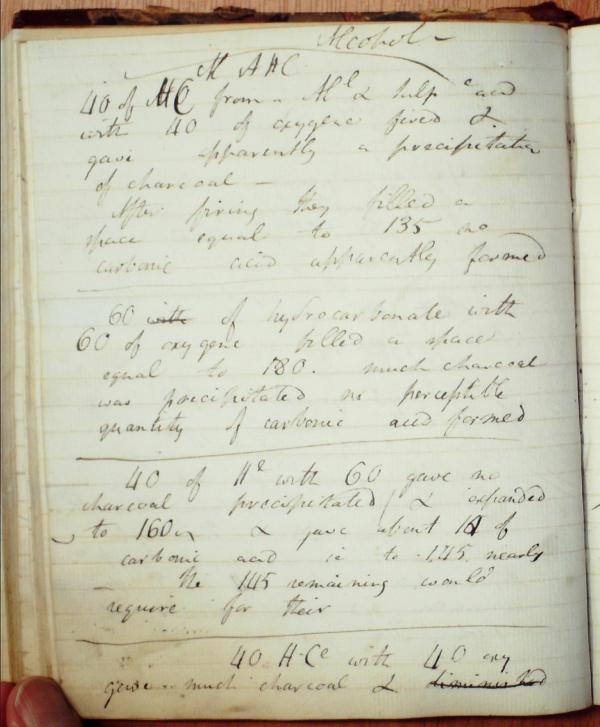 Alcohol -
40 of HC from Al & sulp c acid
with 40 of oxygene fired &
gave apparently a precipitation
of charcoal -
After firing they filled a
space equal to 135 no
carbonic acid apparently formed
60 with of hydrocarbonate with
60 of oxygene filled a space
equal to 180. much charcoal
was precipitated no perceptible
quantity of carbonic acid formed
40 of with 60 gave no
charcoal precipitated & expanded
to 160 & gave about of
carbonic acid ie to 145 nearly
The 145 remaining would
require for their
40 H-Ce with 40 oxy
gave much charcoal & diminished